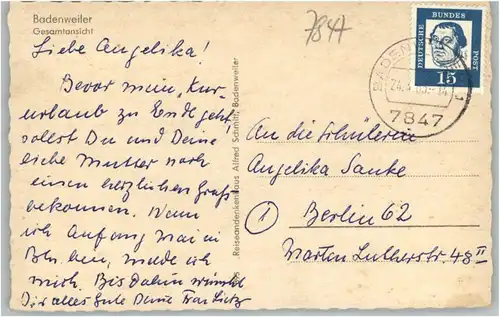 Badenweiler
Gesamtansicht
7847
Liebe Angelika!
Bevor mein "Kur-
urlaub zu Ende geht,
sollst Du und Deine
liebe Mutter noch
einen herzlichen Gruß
bekommen. Wenn
ich Anfang Mai in
Bln. bin, melde ich
mich. Bis dahin wünscht
Dir alles Gute Deine Frau
"Reiseandenkenhaus Alfred Schmitt, Badenweiler
DEUTSCHE BUNDES POST
15
BADEN
7847
An die Schülerin
Angelika Sauke
1 Berlin 62
Martin Lutherstr. 48 II